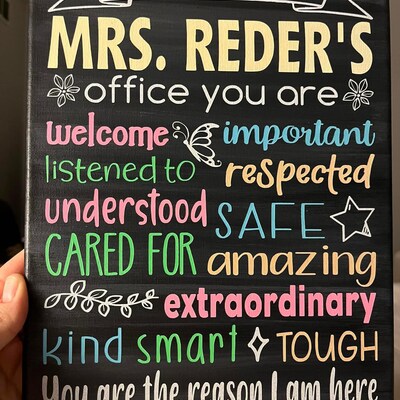 MRS. REDER'S
office you are
welcome important
listened to respected
understood SAFE
CARED FOR amazing
extraordinary
kind smart TOUGH
You are the reason I am here